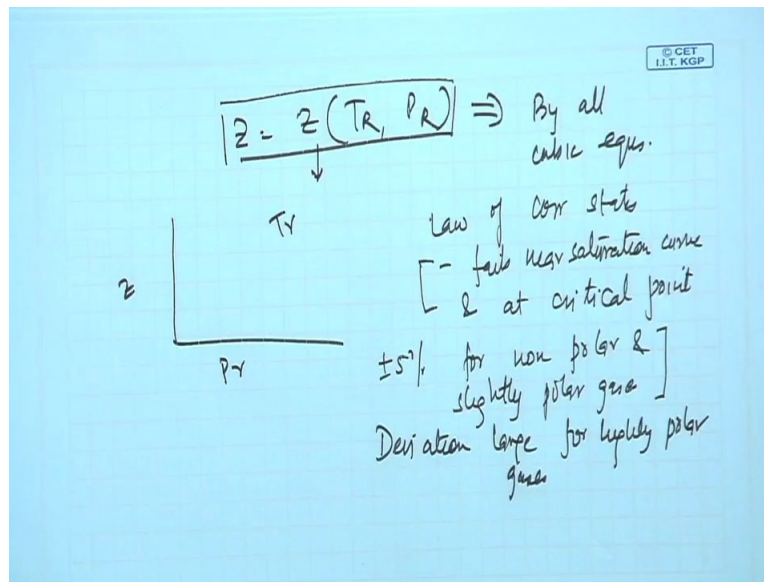 © CET
I.I.T. KGP
Z = Z(TR, PR) ⇒ By all
cubic equs.
Tr
Z
Pr
Law of corr states
- fails near saturation curve
& at critical point
±5% for non polar &
slightly polar gases
Deviation large for highly polar
gases